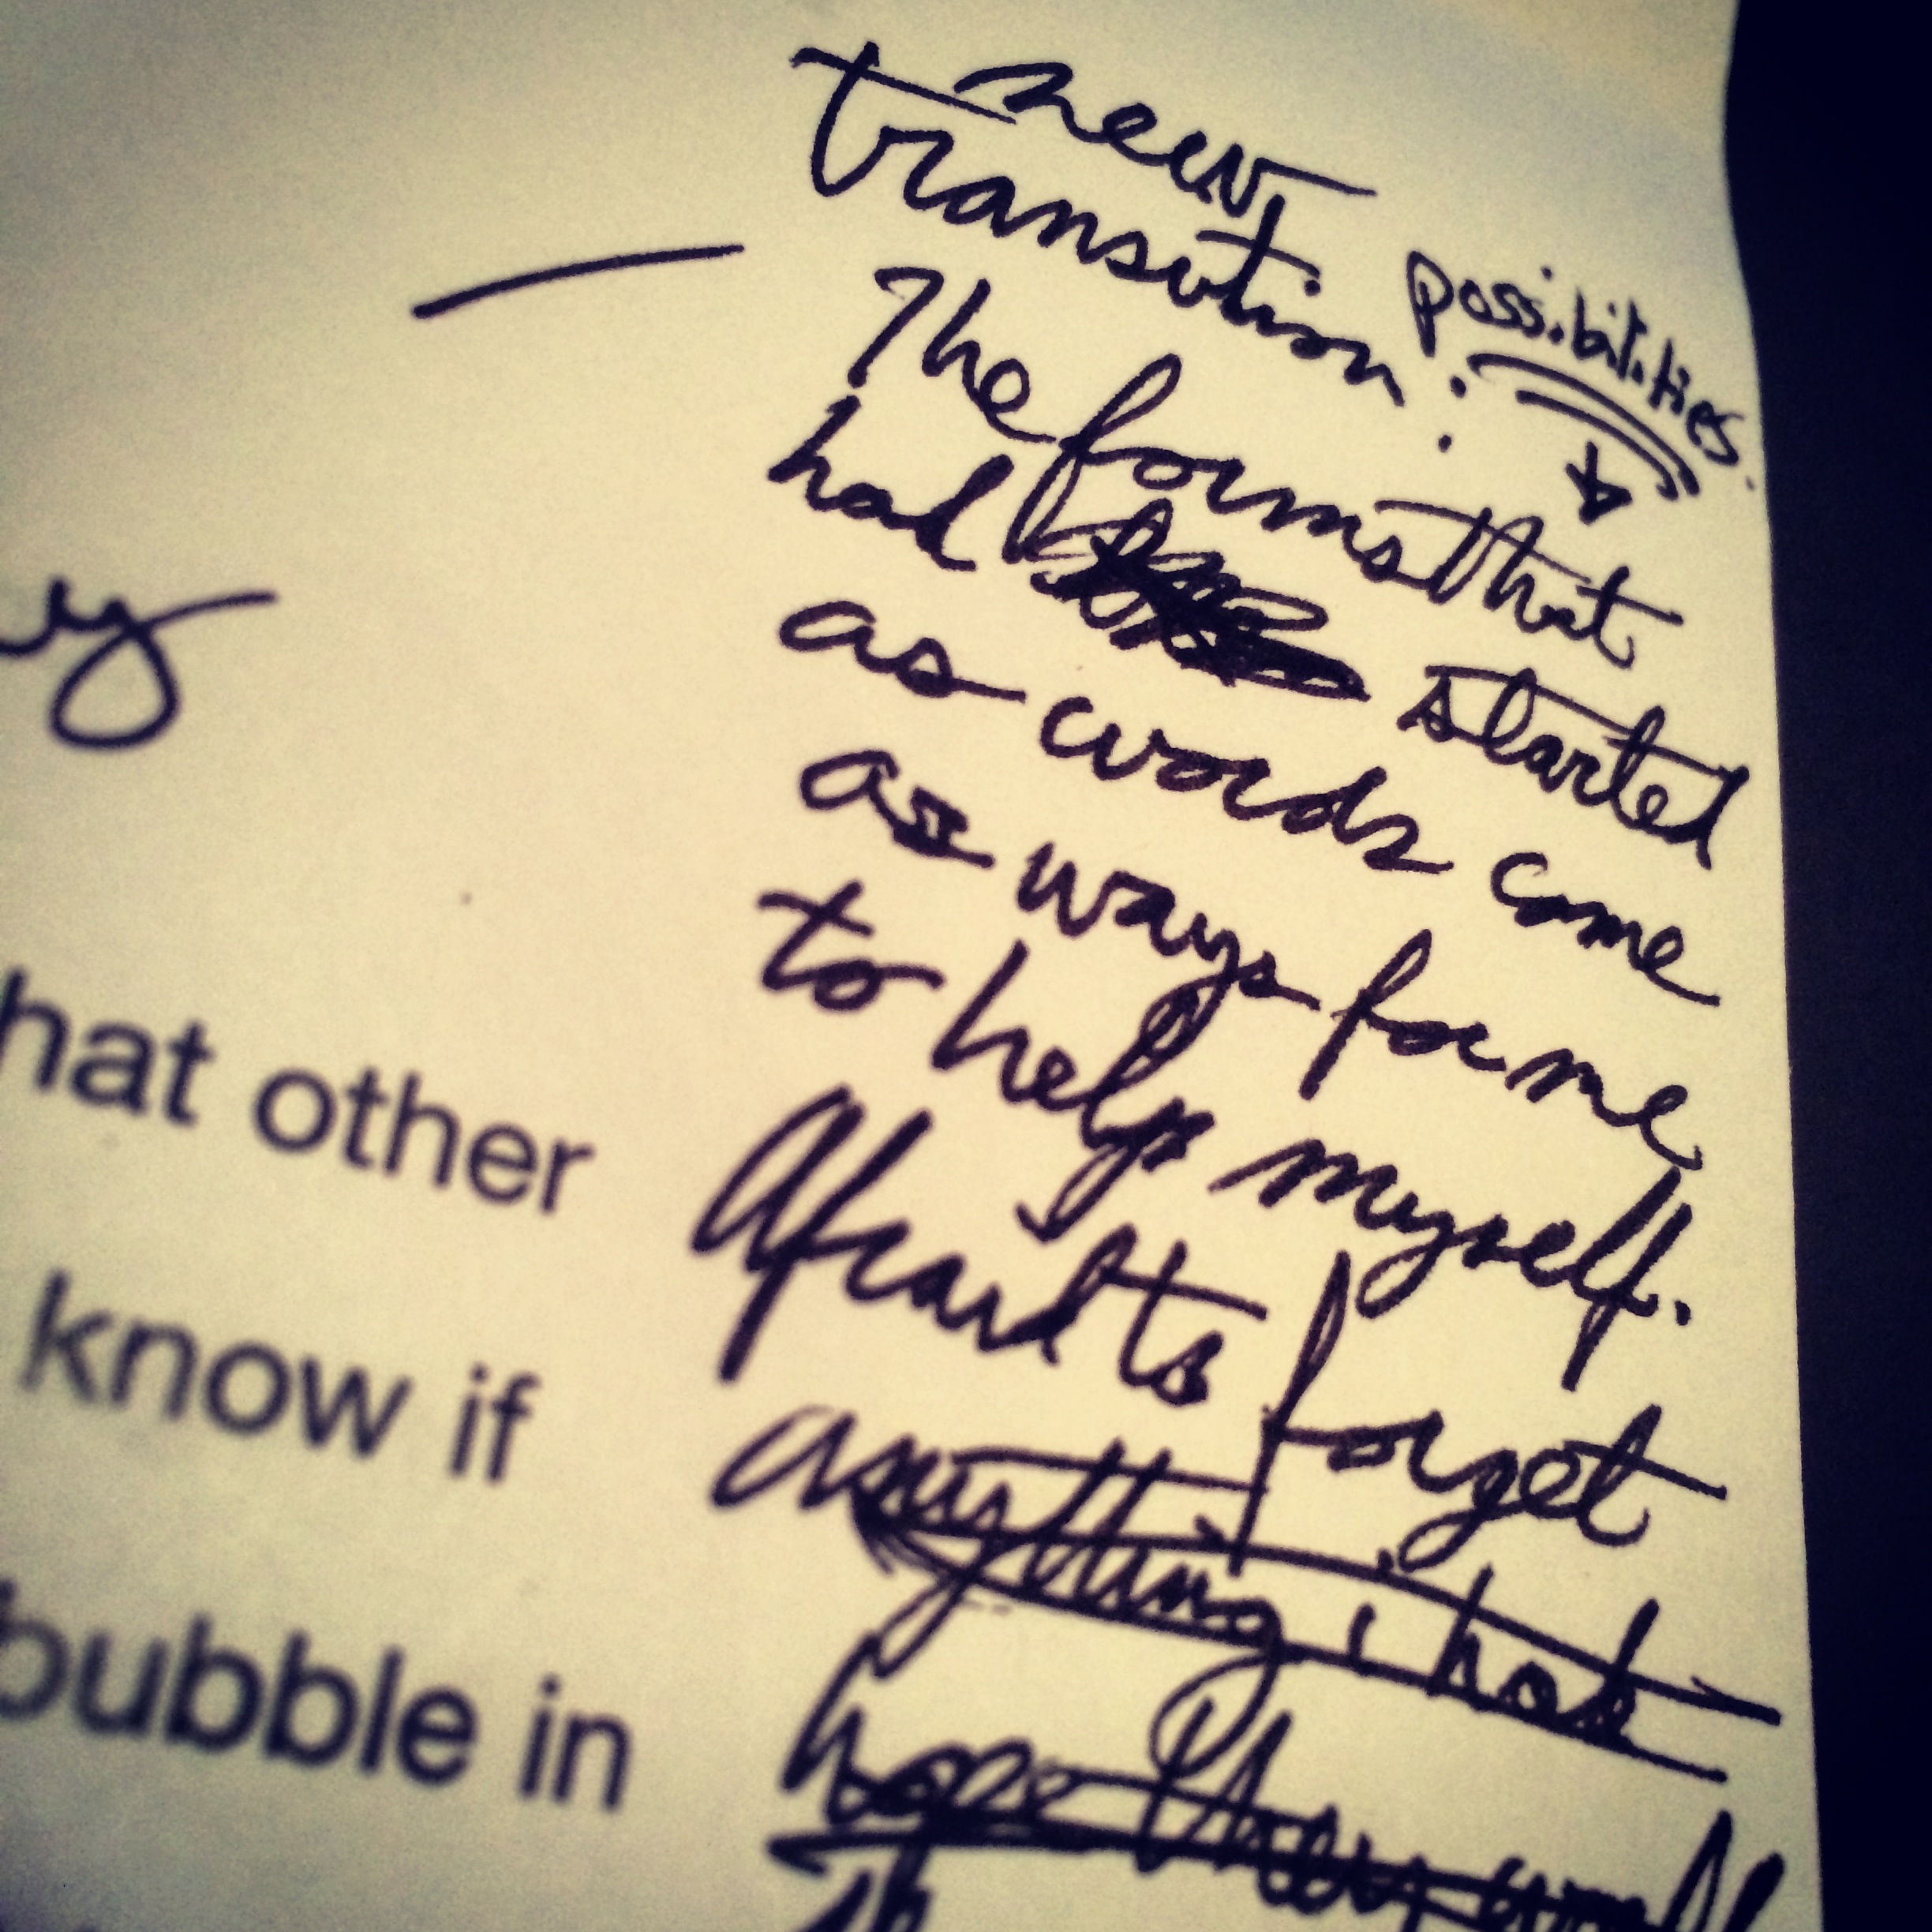 new
transition:
possibilities.
The forms that
had started
as words come
as ways for me
to help myself.
Afraid to forget
anything i had
hope they
hat other
know if
bubble in